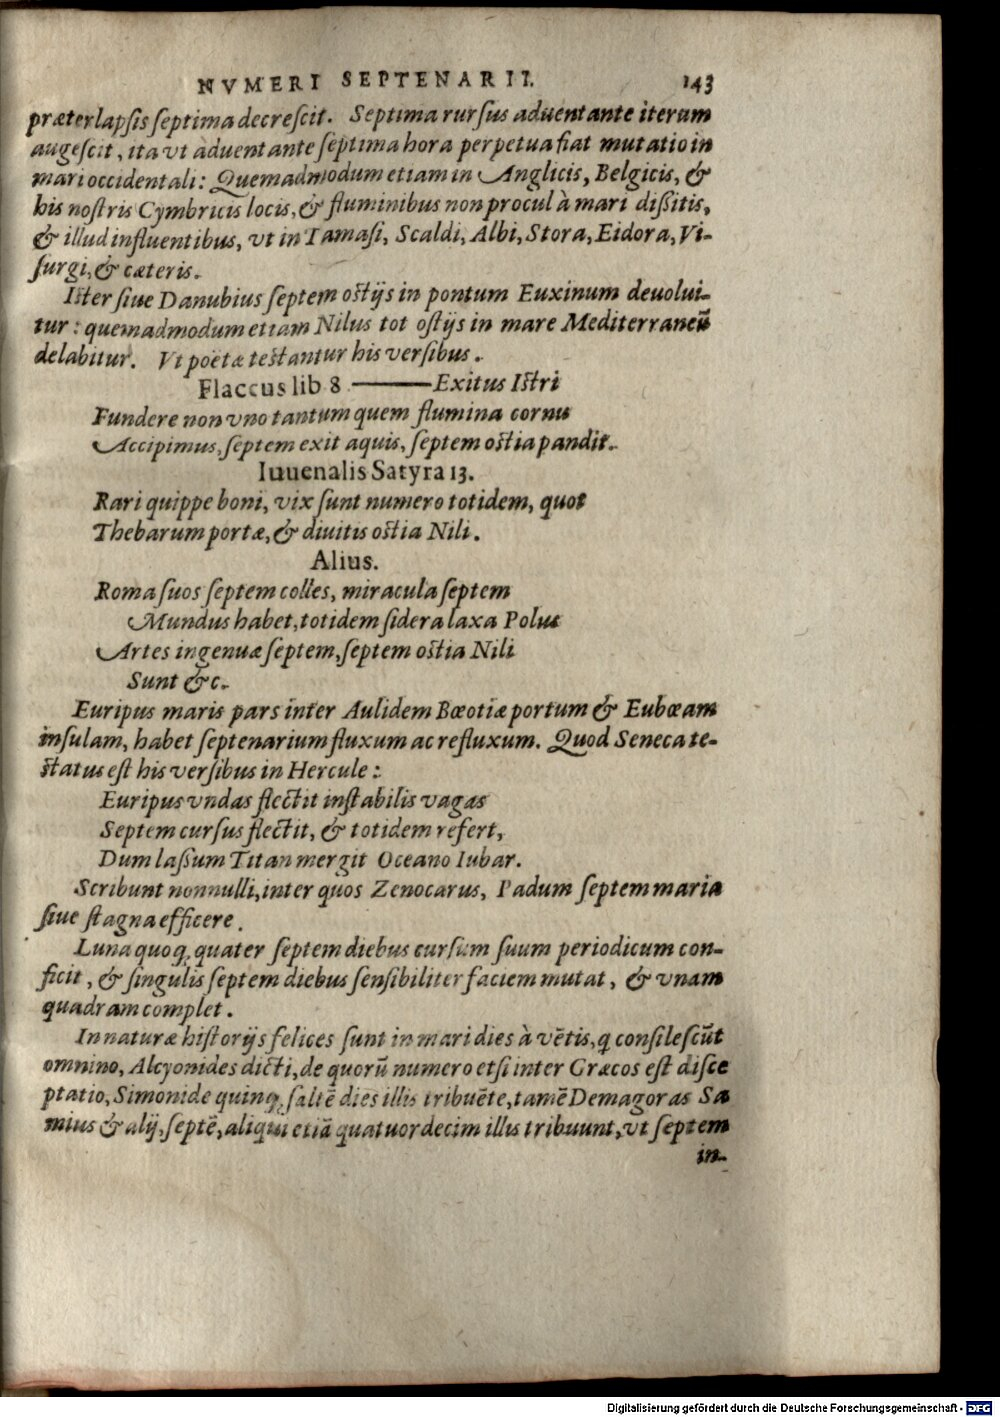 NVMERI SEPTENARII. 143
præterlapſis ſeptima decreſcit. Septima rurſus aduentante iterum
augeſcit, ita vt aduentante ſeptima hora perpetua fiat mutatio in
mari occidentali: Quemadmodum etiam in Anglicis, Belgicis, &
his noſtris Cymbricis locis, & fluminibus non procul à mari diſsitis,
& illud influentibus, vt in Tamaſi, Scaldi, Albi, Stora, Eidora, Vi-
ſurgi, & cæteris.
Iſter ſiue Danubius ſeptem oſtijs in pontum Euxinum deuolui-
tur: quemadmodum etiam Nilus tot oſtijs in mare Mediterraneũ
delabitur. Vt poëtæ teſtantur his verſibus.
Flaccus lib 8 ——— Exitus Iſtri
Fundere non vno tantum quem flumina cornu
Accipimus, ſeptem exit aquis, ſeptem oſtia pandit.
Iuuenalis Satyra 13.
Rari quippe boni, vix ſunt numero totidem, quot
Thebarum portæ, & diuitis oſtia Nili.
Alius.
Roma ſuos ſeptem colles, miracula ſeptem
Mundus habet, totidem ſidera laxa Polus
Artes ingenuæ ſeptem, ſeptem oſtia Nili
Sunt &c.
Euripus maris pars inter Aulidem Bœotiæ portum & Eubœam
inſulam, habet ſeptenarium fluxum ac refluxum. Quod Seneca te-
ſtatus eſt his verſibus in Hercule:
Euripus vndas flectit inſtabilis vagas
Septem curſus flectit, & totidem refert,
Dum laſsum Titan mergit Oceano Iubar.
Scribunt nonnulli, inter quos Zenocarus, Padum ſeptem maria
ſiue ſtagna efficere.
Luna quoq; quater ſeptem diebus curſum ſuum periodicum con-
ficit, & ſingulis ſeptem diebus ſenſibiliter faciem mutat, & vnam
quadram complet.
In naturæ hiſtorijs felices ſunt in mari dies à vẽtis, q conſileſcũt
omnino, Alcyonides dicti, de quorũ numero etſi inter Græcos eſt diſce
ptatio, Simonide quinq; ſaltẽ dies illis tribuẽte, tamẽ Demagoras Sa
mius & alij, ſeptẽ, aliqui etiã quatuordecim illis tribuunt, vt ſeptem
in-
Digitalisierung gefördert durch die Deutsche Forschungsgemeinschaft - DFG